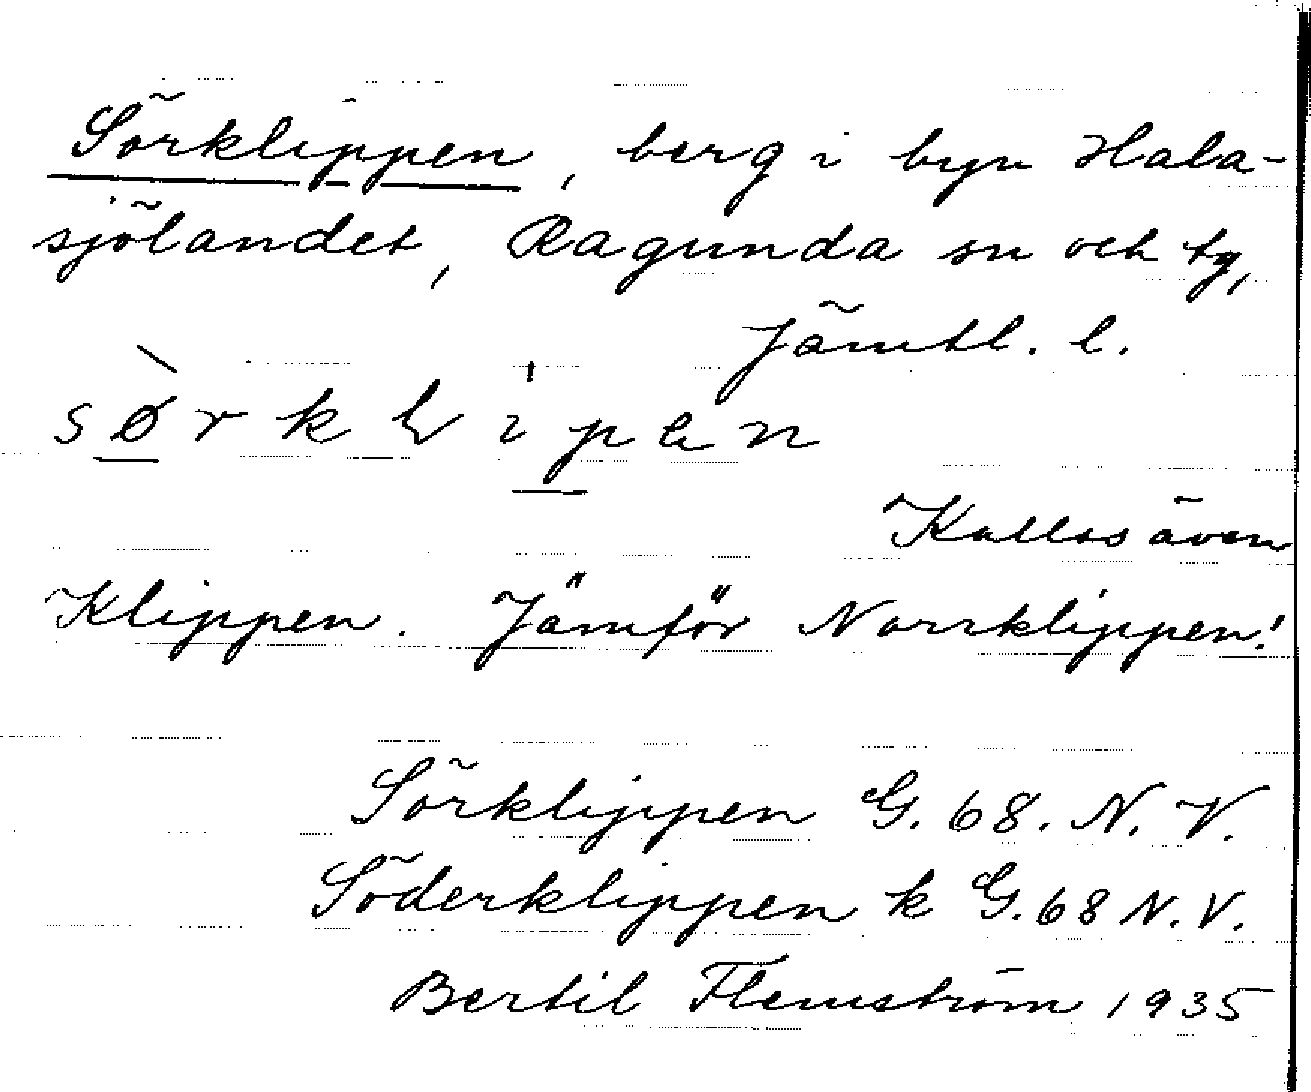 Sörklippen, berg i byn Hala-
sjölandet, Ragunda sn och tg,
Jämtl. l.
sørklipen
Kallas även
Klippen. Jämför Norrklippen!
Sörklippen G. 68. N. V.
Söderklippen k G. 68 N. V.
Bertil Flemström 1935